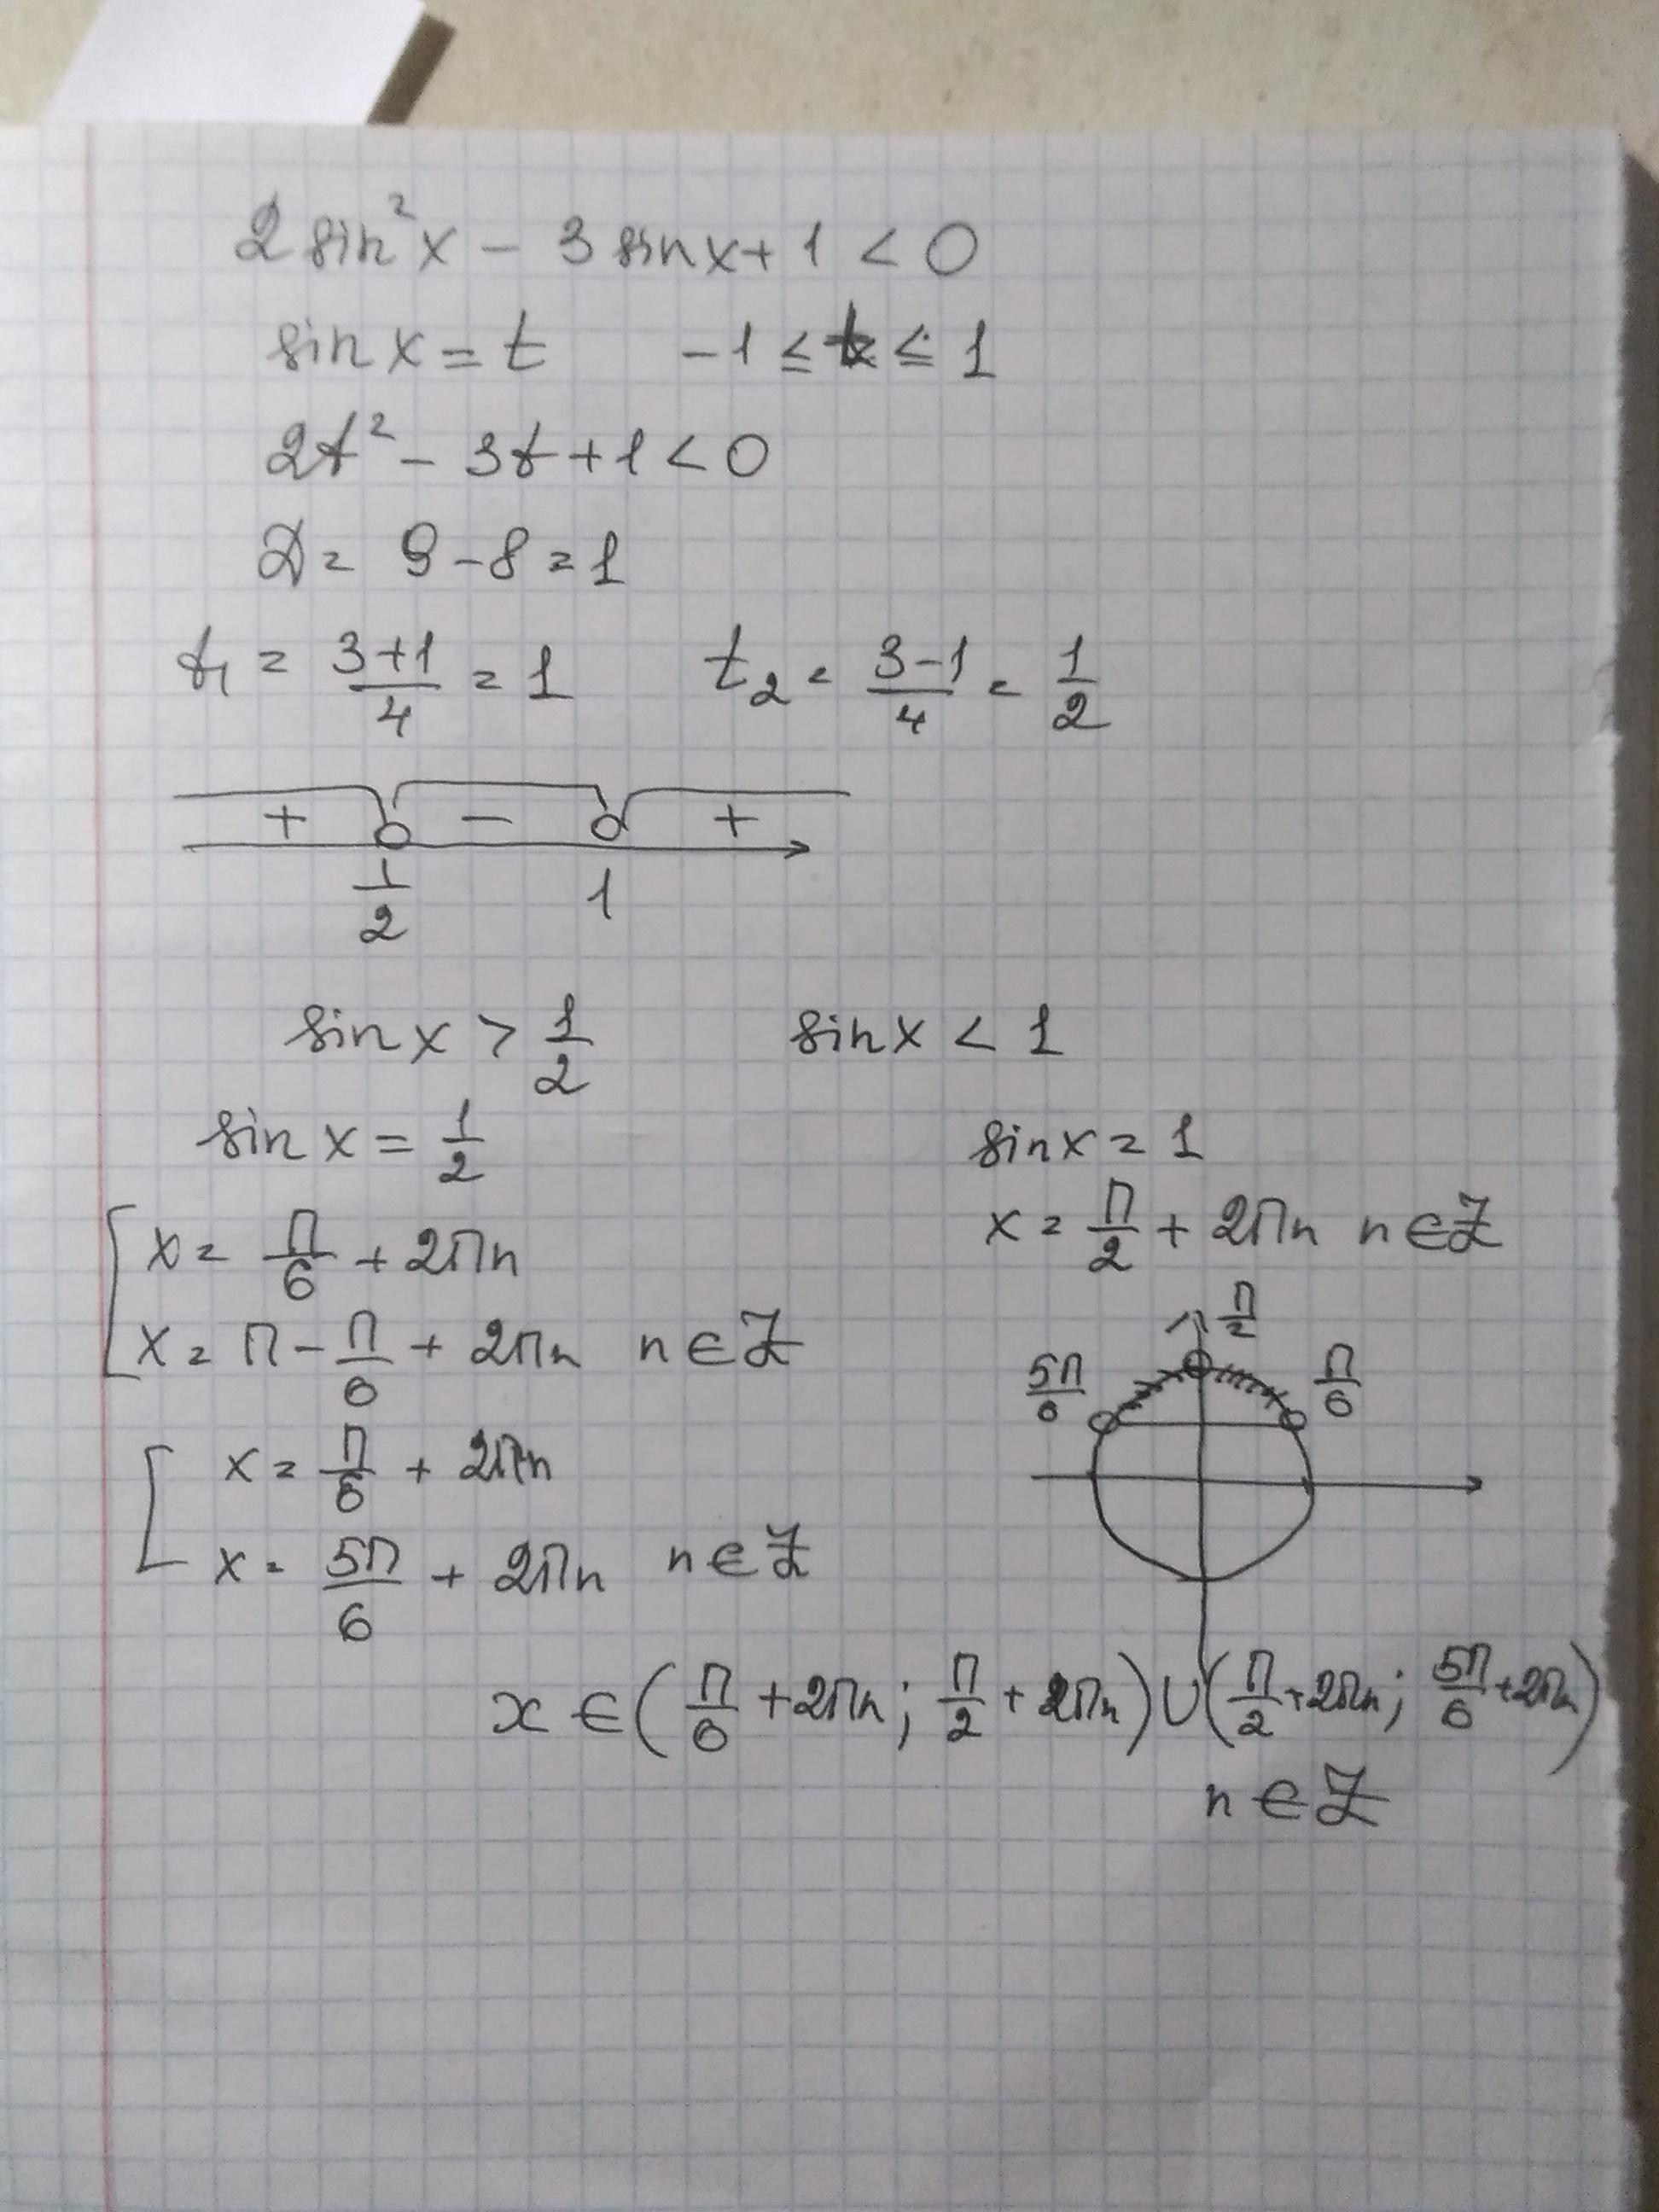 2 sin² x − 3 sin x + 1 < 0
sin x = t −1 ≤ t ≤ 1
2t² − 3t + 1 < 0
D = 9 − 8 = 1
t₁ = (3+1)/4 = 1 t₂ = (3−1)/4 = 1/2
+ − +
1/2 1
sin x > 1/2 sin x < 1
sin x = 1/2 sin x = 1
x = π/6 + 2πn x = π/2 + 2πn n ∈ Z
x = π − π/6 + 2πn n ∈ Z
π/2
5π/6 π/6
x = π/6 + 2πn
x = 5π/6 + 2πn n ∈ Z
x ∈ (π/6 + 2πn; π/2 + 2πn) ∪ (π/2 + 2πn; 5π/6 + 2πn)
n ∈ Z